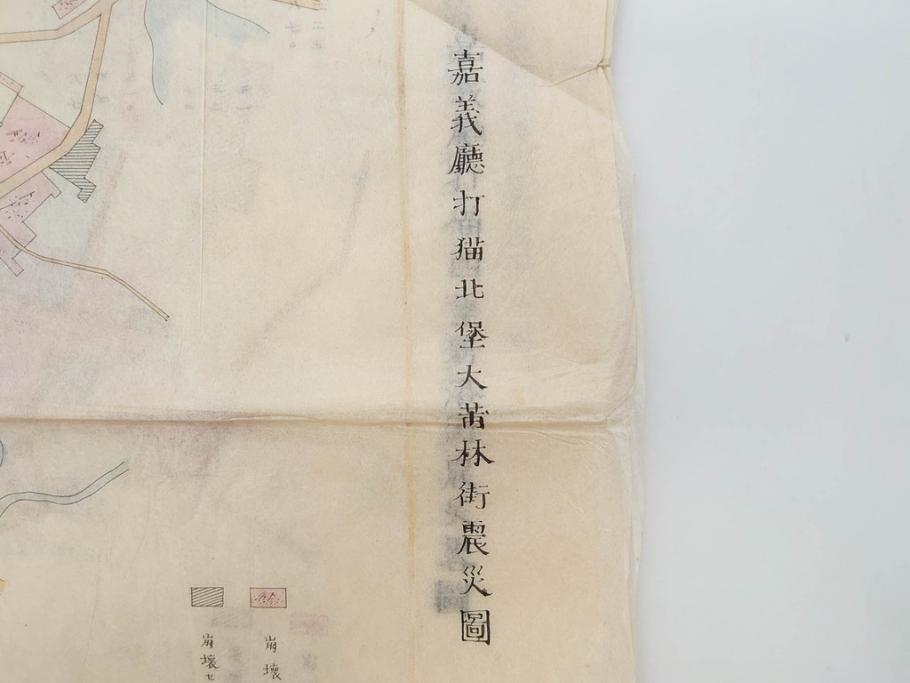 嘉義廳打猫北堡大莆林街震災圖
崩壞
崩壞セ